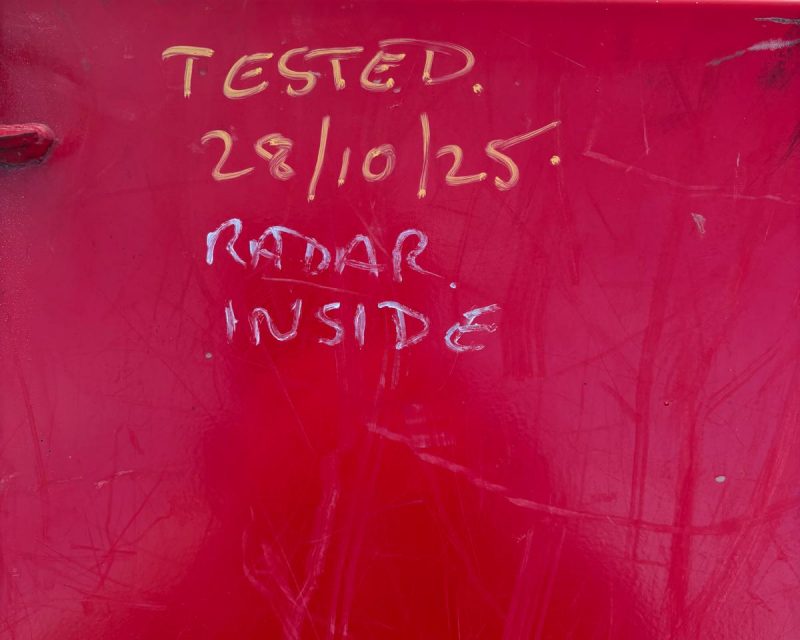 TESTED.
28/10/25.
RADAR.
INSIDE